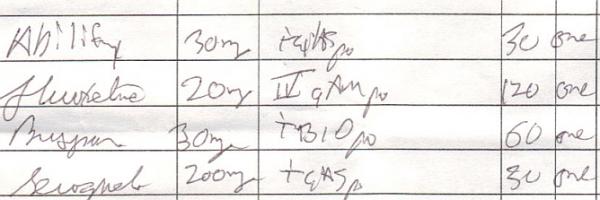 Abilify 30mg † qHS po 30 one
fluoxetine 20mg IV qAM po 120 one
Buspar 30mg † BID po 60 one
Seroquel 200mg † qHS po 30 one